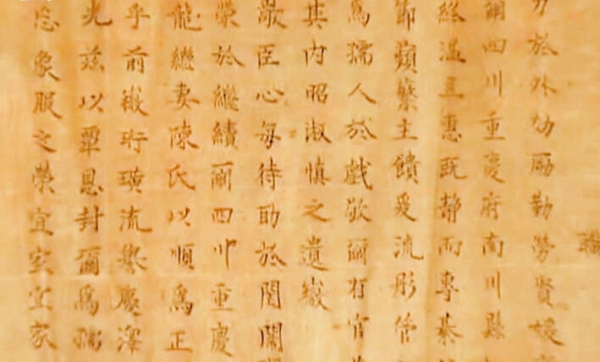 力於外功勵勤勞賢媛
爾四川重慶府南川縣
終溫且惠既靜而專
節蘋蘩主饋爰流彤管
為孺人於戲敬爾有官
其內昭淑慎之遺徽
臣心每待助於閨闈
榮於繼續爾四川重慶
龍繼妻陳氏以順為正
乎前徽珩璜流譽慶澤
光茲以覃恩封爾為孺
忘象服之榮宜室宜家